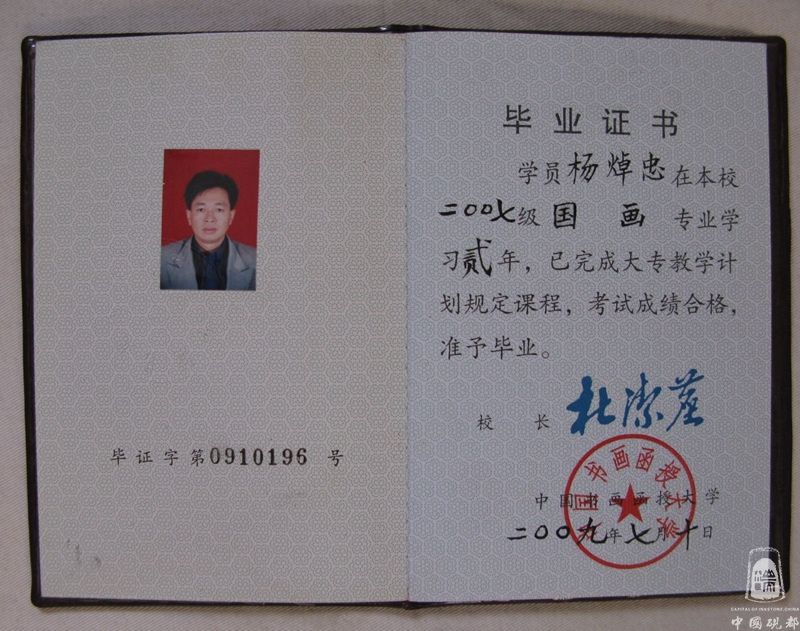 毕证字第0910196 号
毕业证书
学员杨焯忠在本校
二〇〇七级国画专业学
习贰年，已完成大专教学计
划规定课程，考试成绩合格，
准予毕业。
校长
中国书画函授大学
中国书画函授大学
二〇〇九年七月十日
CAPITAL OF INKSTONE,CHINA
中国砚都